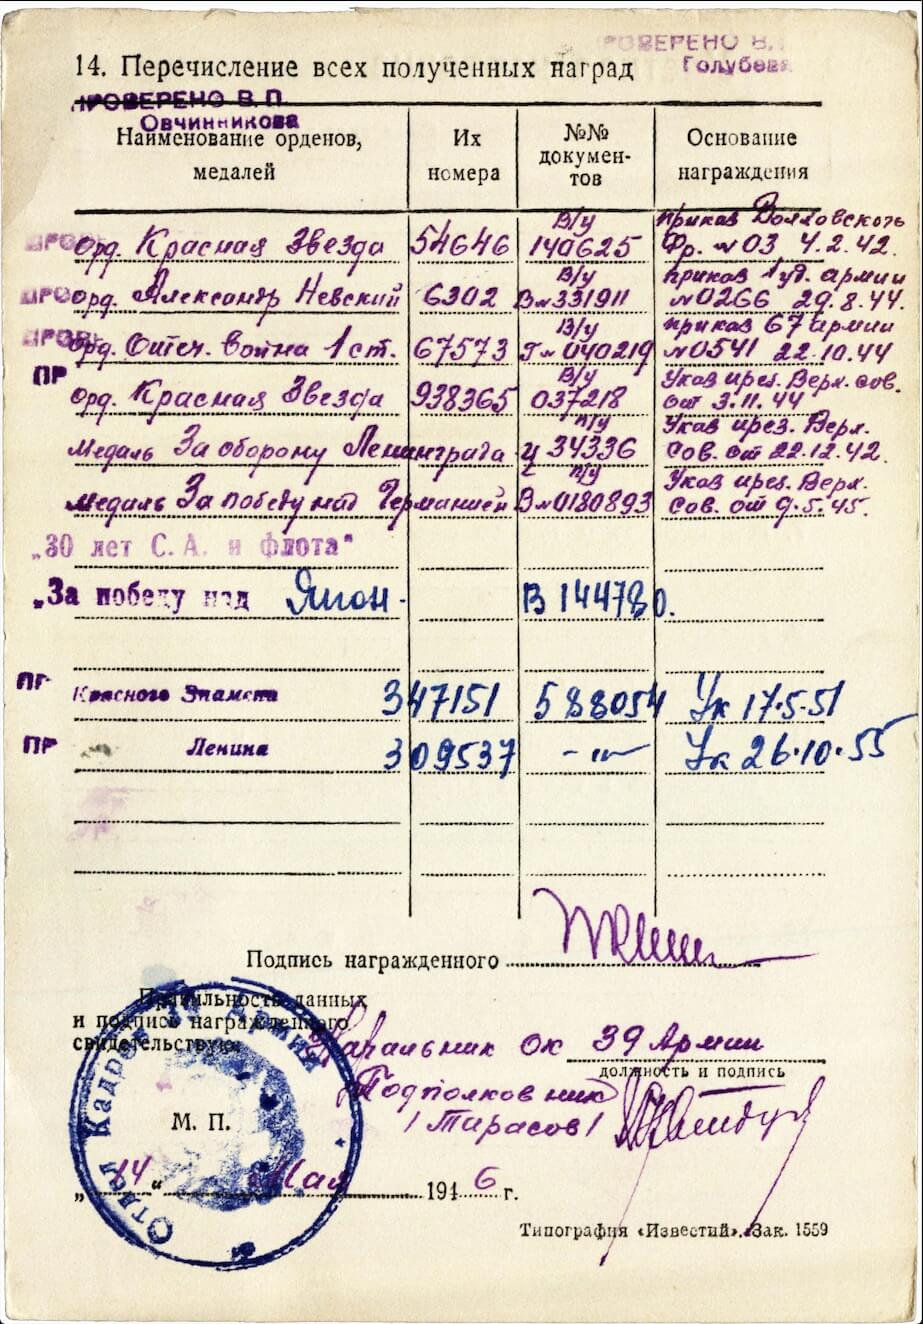 ПРОВЕРЕНО В.
Голубева
14. Перечисление всех полученных наград
ПРОВЕРЕНО В. П.
Овчинникова
Наименование орденов, медалей
Их номера
№№ документов
Основание награждения
Орд. Красная Звезда 54646 В/у 140625 приказ Волховского Фр. №03 4.2.42.
Орд. Александр Невский 6302 В/у В №331911 приказ 1 уд. армии №0266 29.8.44.
Орд. Отеч. война 1 ст. 67573 В/у Г №040219 приказ 67 армии №0541 22.10.44
ПР
Орд. Красная Звезда 938365 В/у 037218 Указ през. Верх. сов. от 3.11.44
Медаль За оборону Ленинграда п/у Ц 34336 Указ през. Верх. Сов. от 22.12.42.
Медаль За победу над Германией п/у В №0180893 Указ през. Верх. Сов. от 9.5.45.
„30 лет С. А. и флота"
„За победу над Япон. В 144780.
ПР Красного Знамени 347151 588054 Ук 17.5.51
ПР Ленина 309537 -〃- Ук 26.10.55
Подпись награжденного
Правильность данных
и подпись награжденного
свидетельствую:
Начальник ОК 39 Армии
должность и подпись
Подполковник
/Тарасов/
Отдел Кадров 39 Армии
М. П.
„14" Мая 1946 г.
Типография «Известий». Зак. 1559